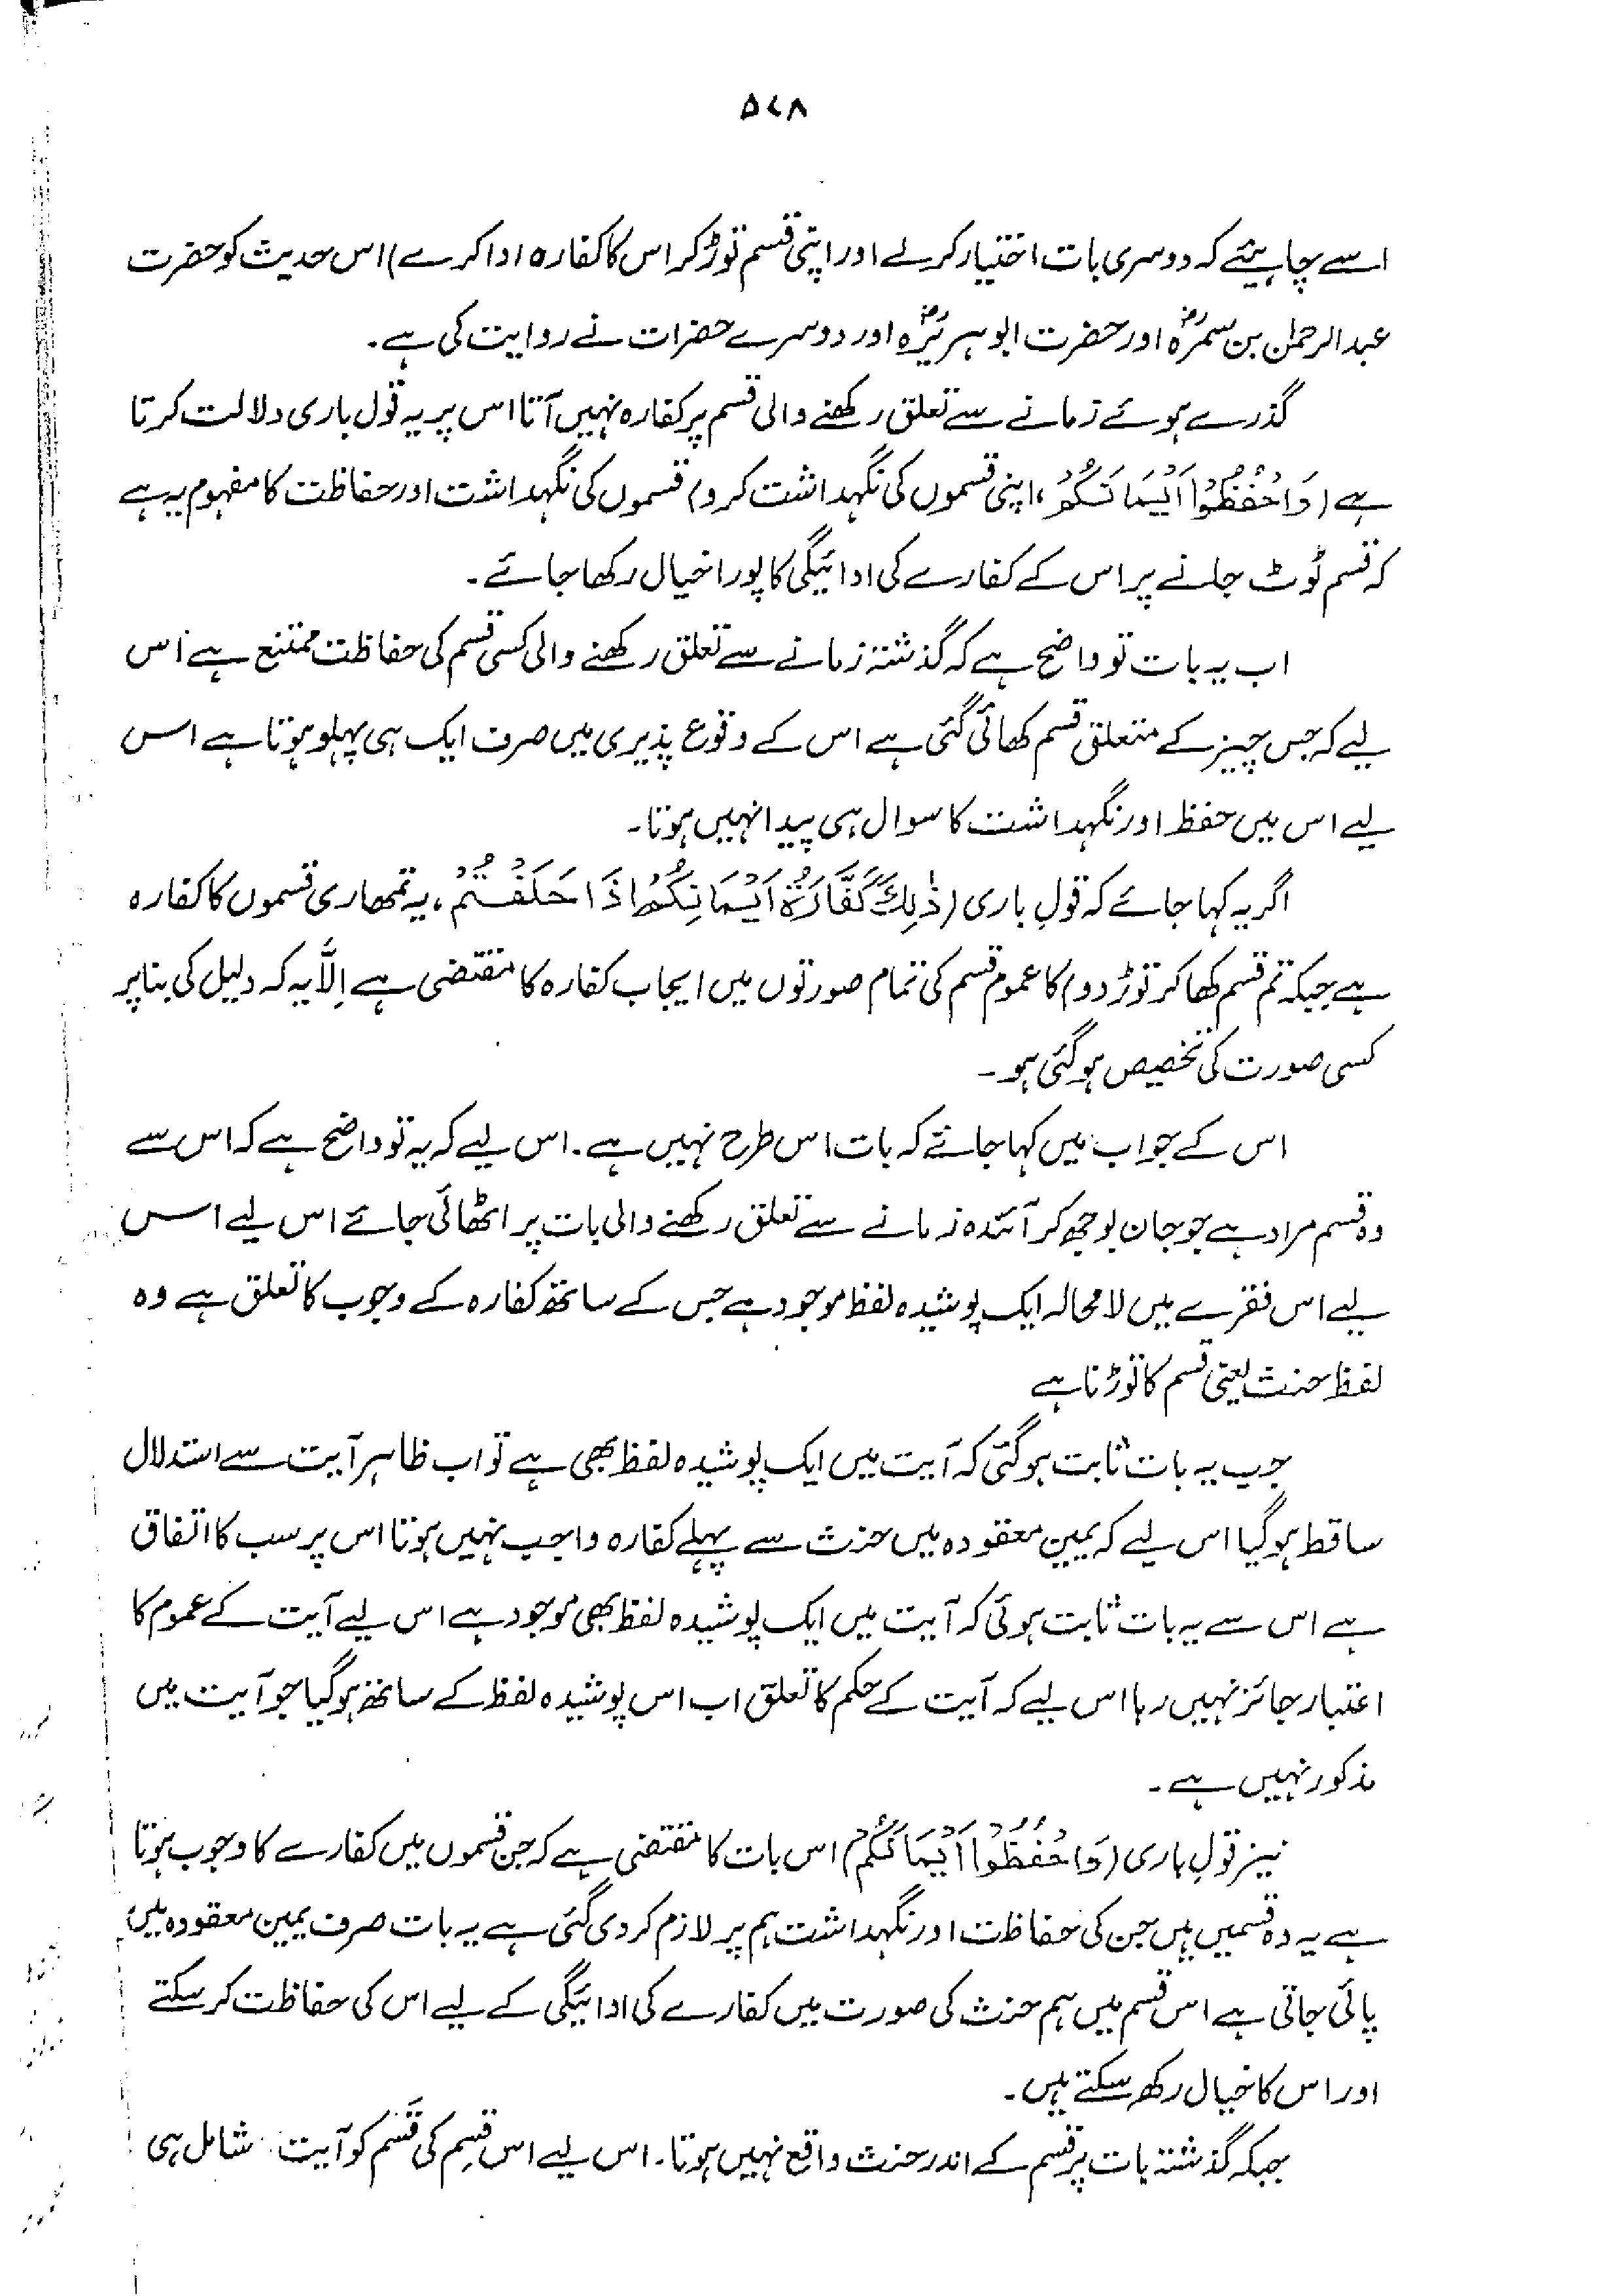 ۵۷۸
اسے چاہیئے کہ دوسری بات اختیار کرلے اور اپنی قسم توڑ کر اس کا کفارہ ادا کرے) اس حدیث کو حضرت
عبدالرحمٰن بن سمرہؓ اور حضرت ابوہریرہؓ اور دوسرے حضرات نے روایت کی ہے۔
گذرے ہوئے زمانے سے تعلق رکھنے والی قسم پر کفارہ نہیں آتا اس پر یہ قول باری دلالت کرتا
ہے (وَاحْفَظُوْا اَیْمَانَکُمْ، اپنی قسموں کی نگہداشت کرو) قسموں کی نگہداشت اور حفاظت کا مفہوم یہ ہے
کہ قسم ٹوٹ جانے پر اس کے کفارے کی ادائیگی کا پورا خیال رکھا جائے۔
اب یہ بات تو واضح ہے کہ گذشتہ زمانے سے تعلق رکھنے والی کسی قسم کی حفاظت ممتنع ہے اس
لیے کہ جس چیز کے متعلق قسم کھائی گئی ہے اس کے وقوع پذیری میں صرف ایک ہی پہلو ہوتا ہے اس
لیے اس میں حفظ اور نگہداشت کا سوال ہی پیدا نہیں ہوتا۔
اگر یہ کہا جائے کہ قولِ باری (ذٰلِکَ کَفَّارَۃُ اَیْمَانِکُمْ اِذَا حَلَفْتُمْ، یہ تمھاری قسموں کا کفارہ
ہے جبکہ تم قسم کھا کر توڑ دو) کا عموم قسم کی تمام صورتوں میں ایجاب کفارہ کا مقتضی ہے اِلَّا یہ کہ دلیل کی بنا پر
کسی صورت کی تخصیص ہو گئی ہو۔
اس کے جواب میں کہا جائے کہ بات اس طرح نہیں ہے۔ اس لیے کہ یہ تو واضح ہے کہ اس سے
وہ قسم مراد ہے جو جان بوجھ کر آئندہ زمانے سے تعلق رکھنے والی بات پر اٹھائی جائے اس لیے اس
لیے اس فقرے میں لامحالہ ایک پوشیدہ لفظ موجود ہے جس کے ساتھ کفارہ کے وجوب کا تعلق ہے وہ
لفظ حنث یعنی قسم کا توڑنا ہے
جب یہ بات ثابت ہو گئی کہ آیت میں ایک پوشیدہ لفظ بھی ہے تو اب ظاہر آیت سے استدلال
ساقط ہو گیا اس لیے کہ یمین معقودہ میں حنث سے پہلے کفارہ واجب نہیں ہوتا اس پر سب کا اتفاق
ہے اس سے یہ بات ثابت ہوئی کہ آیت میں ایک پوشیدہ لفظ بھی موجود ہے اس لیے آیت کے عموم کا
اعتبار جائز نہیں رہا اس لیے کہ آیت کے حکم کا تعلق اب اس پوشیدہ لفظ کے ساتھ ہو گیا جو آیت میں
مذکور نہیں ہے۔
نیز قولِ باری (وَاحْفَظُوْا اَیْمَانَکُمْ) اس بات کا مقتضی ہے کہ جن قسموں میں کفارے کا وجوب ہوتا
ہے یہ وہ قسمیں ہیں جن کی حفاظت اور نگہداشت ہم پر لازم کر دی گئی ہے یہ بات صرف یمین معقودہ میں
پائی جاتی ہے اس قسم میں ہم حنث کی صورت میں کفارے کی ادائیگی کے لیے اس کی حفاظت کر سکتے
اور اس کا خیال رکھ سکتے ہیں۔
جبکہ گذشتہ بات پر قسم کے اندر حنث واقع نہیں ہوتا۔ اس لیے اس قِسم کی قَسم کو آیت شامل ہی